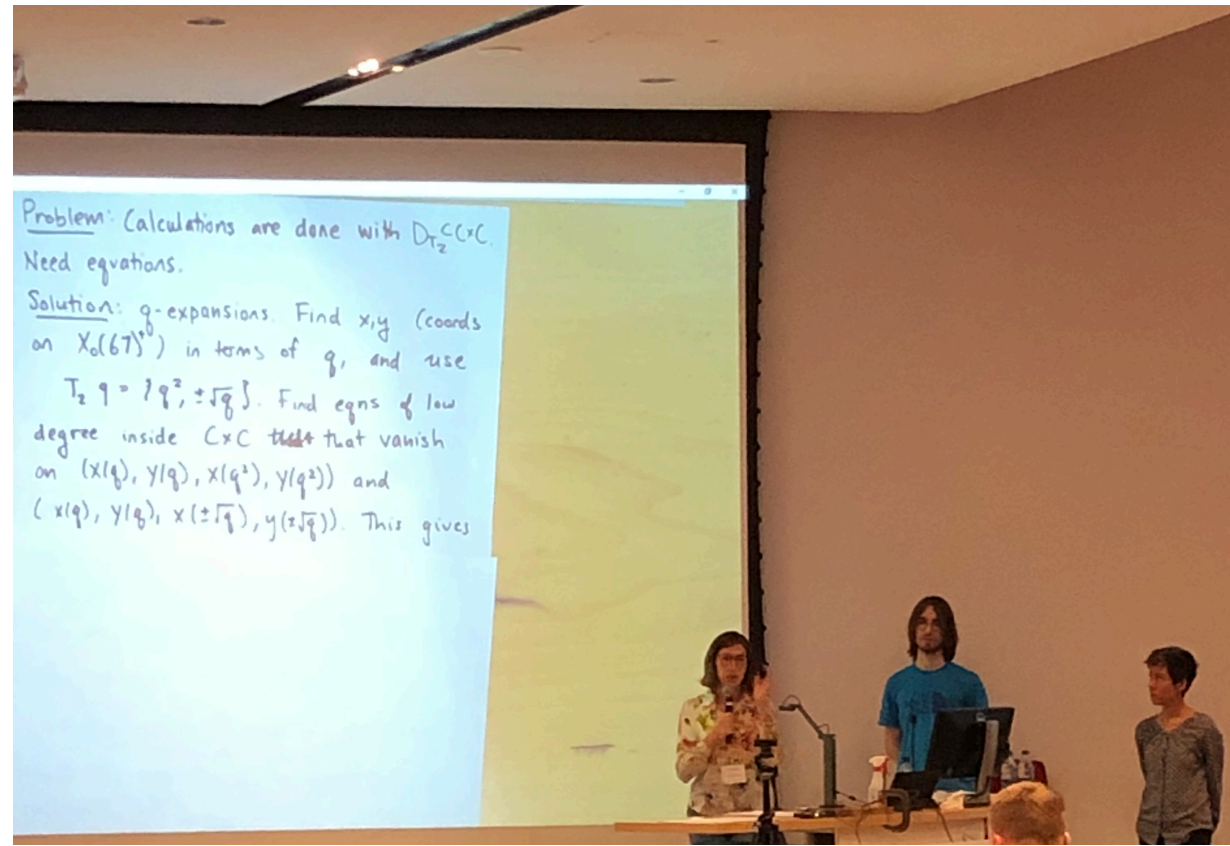 Problem: Calculations are done with D_{T_2} ⊂ C×C.
Need equations.
Solution: q-expansions. Find x,y (coords
on X_0(67)^+) in terms of q, and use
T_2 q = {q^2, ±√q}. Find eqns of low
degree inside C×C that vanish
on (x(q), y(q), x(q^2), y(q^2)) and
(x(q), y(q), x(±√q), y(±√q)). This gives